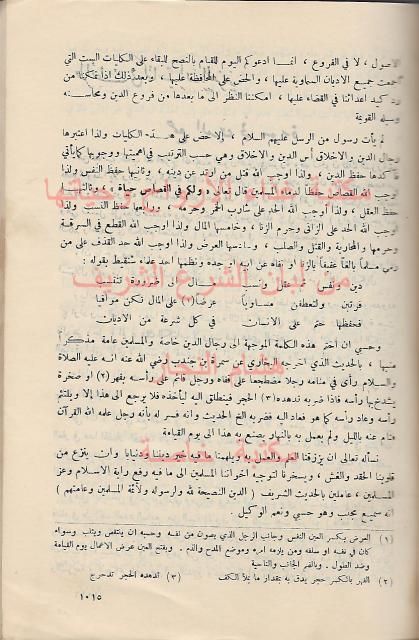 الاصول ، لا في الفروع ، انما ادعوكم اليوم للقيام بالنصح للبقاء على الكليات الست التي
اجمعت جميع الاديان السماوية عليها ، والحض على المحافظة عليها ، وبعد ذلك اذا تمكنا من
رد كيد اعدائنا في القضاء عليها ، امكننا النظر الى ما بعدها من فروع الدين ومحاسنه
وسبله القويمة
لم يأت رسول من الرسل عليهم السلام ، إلا حض على هذه الكليات ولذا اعتبرها
رجال الدين والاخلاق أس الدين والاخلاق وهي حسب الترتيب في اهميتها ووجوبها كما يأتي
فآكدها حفظ الدين ، ولذا أوجب الله قتل من ارتد عن دينه ، وثانيها حفظ النفس ولذا
اوجب الله القصاص حفظاً لدماء المسلمين قال تعالى ولكم في القصاص حياة ، وثالثها
حفظ العقل ، ولذا أوجب الله الحد على شارب الخمر وحرمه ، ورابعها حفظ النسب ولذا
أوجب الله الحد على الزاني وحرم الزنا ، وخامسها المال ولذا اوجب الله القطع في السرقة
وحرمها والمحاربة والقتل والصلب ، وسادسها العرض ولذا اوجب الله حد القذف على من
رمى مسلماً بالغاً عفيفاً بالزنا او نفاه عن ابيه او جده ونظمها احد علماء شنقيط بقوله :
دين ونفس ثم عقل ونسب مال الى ضرورة تنتسب
ورتبن ولتعطفن مساوياً عرضاً (١) على المال تكن موافيا
فحفظها حتم على الانسان في كل شرعة من الاديان
وحسبي ان اختم هذه الكلمة الموجهة الى رجال الدين خاصة والمسلمين عامة مذكراً
منبها ، بالحديث الذي اخرجه البخاري عن سمرة بن جندب رضي الله عنه انه عليه الصلاة
والسلام رأى في منامه رجلا مضطجعا على قفاه ورجل قائم على رأسه بفهر (٢) او صخرة
يشدخ بها رأسه فاذا ضربه تدهده (٣) الحجر فينطلق اليه ليأخذه فلا يرجع الى هذا إلا ويلتئم
رأسه وعاد رأسه كما هو فعاد اليه فضربه الخ الحديث وانه فسر له بأنه رجل علمه الله القرآن
فنام عنه بالليل ولم يعمل به بالنهار يصنع به هذا الى يوم القيامة
نسأله تعالى ان يرزقنا العلم والعمل به ويلهمنا ما فيه خير ديننا ودنيانا وان ينزع من
قلوبنا الحقد والغش ، ويسخرنا لتوجيه اخواننا المسلمين الى ما فيه رفع راية الاسلام وعز
المسلمين ، عاملين بالحديث الشريف ( الدين النصيحة لله ولرسوله ولأئمة المسلمين وعامتهم )
انه سميع مجيب وهو حسبي ونعم الوكيل .
(١) العرض بكسر العين النفس وجانب الرجل الذي يصون من نفسه وحسبه ان ينتقص ويثلب وسواء
كان في نفسه او سلفه ومن يلزمه امره وموضع المدح والذم . وبفتح العين عرض الاعمال يوم القيامة
وضد الطول . وبالضم الجانب والناحية
(٢) الفهر بالكسر حجر يدق به بمقدار ما يملأ الكف (٣) تدهده الحجر تدحرج
١٠١٥
من لبنان الشرع الشريف
هشام النجار